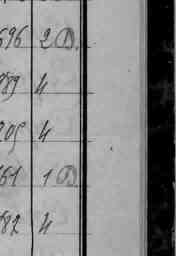 696 2 D.
789 4
205 4
661 1 D
782 4